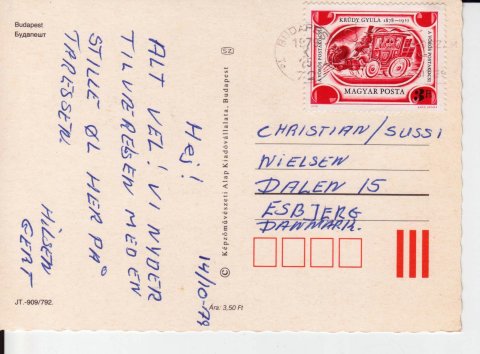 Budapest
Будапешт
Hej! 14/10-79
ALT VEL! VI NYDER
TILVÆRELSEN MED EN
STILLE ØL HER PÅ
TARESSEN.
HILSEN
GERT
JT.-909/792.
Képzőművészeti Alap Kiadóvállalata, Budapest
Ára: 3,50 Ft
KRÚDY GYULA 1878-1933
A VÖRÖS POSTAKOCSI
A VÖRÖS POSTAKOCSI
MAGYAR POSTA
3 Ft
CHRISTIAN/SUSSI
NIELSEN
DALEN 15
ESBJERG
DANMARK.